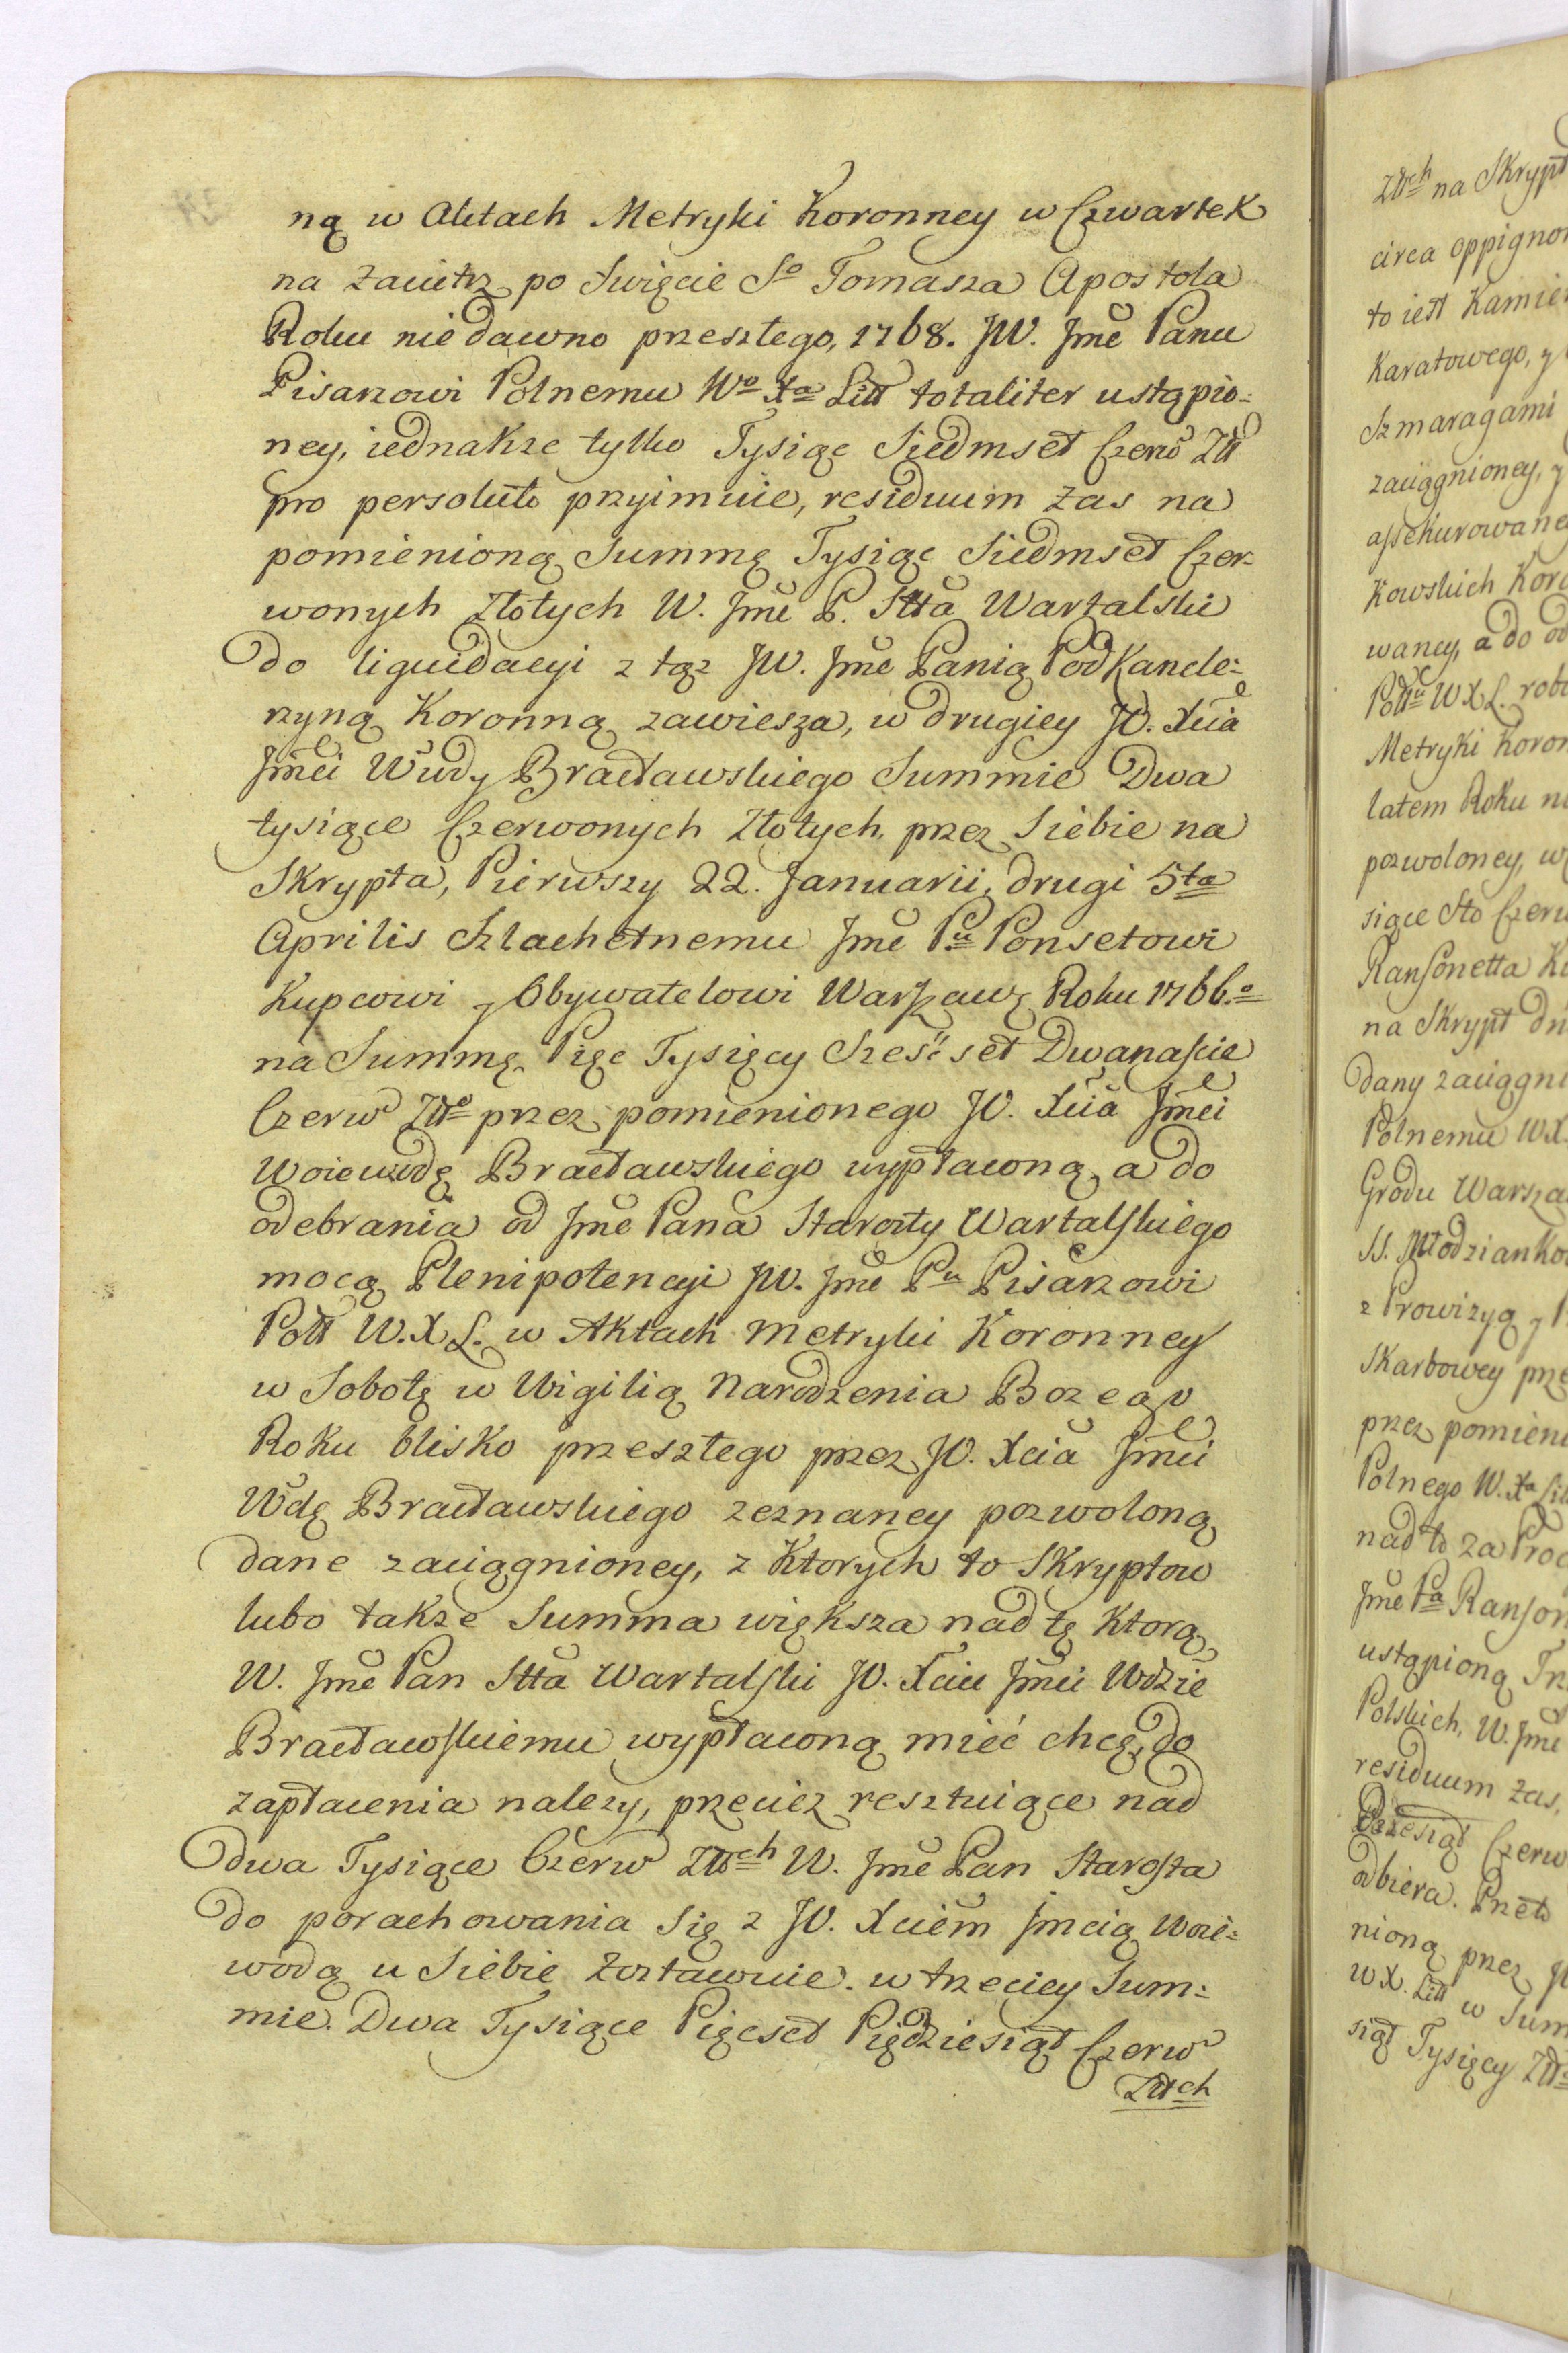 ną w Aktach Metryki Koronney w Czwartek
na zaiutrz po Swięcie So Tomasza Apostoła
Roku nie dawno przeszłego, 1768. JW. Jmć Panu
Pisarzowi Polnemu Wo Xa Litt totaliter ustąpio=
ney, iednakze tylko Tysiąc Siedmset Czerw Złł
pro persoluto przyimuie, residuum zas na
pomienioną Summę Tysiąc Siedmset Czer-
wonych Złotych W. Jmć P. Stta Wartalski
do liquidacyi z tąz JW. Jmć Panią Podkancle=
rzyną Koronną zawiesza, w drugiey JO. Xcia
Jmci Wwdy Bracławskiego Summie Dwa
tysiące Czerwonych Złotych, przez Siebie na
Skrypta, Pierwszy 22. Januarii, drugi 5ta
Aprilis Szlachetnemu Jmć Pu Ponsetowi
Kupcowi y Obywatelowi Warszaws Roku 1766.o
na Summę Pięc Tysięcy Sześć set Dwanaście
Czerw Złł przez pomienionego JO. Xcia Jmci
Woiewodę Bracławskiego wypłaconą, a do
odebrania od Jmć Pana Starosty Wartalskiego
mocą Plenipotencyi JW. Jmć Pu Pisarzowi
Poll W. X L. w Aktach Metryki Koronney
w Sobotę w Wigilią Narodzenia Bozego
Roku blisko przeszłego przez JO. Xcia Jmci
Wdę Bracławskiego zeznaney pozwoloną
dane zaciągnioney, z Ktorych to Skryptow
lubo takze Summa większa nad tę Ktorą
W. Jmć Pan Stta Wartalski JO. Xciu Jmci Wdzie
Bracławskiemu wypłaconą mieć chcę, do
zapłacenia nalezy, przeciez resztuiące nad
dwa Tysiące Czerw Złłch W. Jmć Pan Starosta
do porachowania Się z JO. Xciem Jmcią Woie=
wodą u Siebie Zostawuie. w trzeciey Sum=
mie. Dwa Tysiące Pięcset Pięcdziesiąt Czerw
Złłch
Złłch na Skrypt
circa oppignor
to iest Kamie
Karatowego, y
Szmaragami
zaciągnioney, y
assekurowane
Kowskich Koro
waney, a do od
W X L. robo
Metryki Koron
latem Roku ni
pozwoloney, w
siące Sto Czerw
Ransonetta Ku
na Skrypt dn
dany zaciągni
Polnemu W X.
Grodu Warsza
SS. Młodzianko
z Prowizyą y P
Skarbowey prze
przez pomieni
Polnego W. Xa Lit
nad to za Proc
Jmć Pa Ranson
ustąpioną Trz
Polskich, W. Jmć
residuum zas,
Dziesiąt Czerw
odbiera. Przeto
nioną przez JW
W X. Litt w Sum
siąt Tysięcy Złł